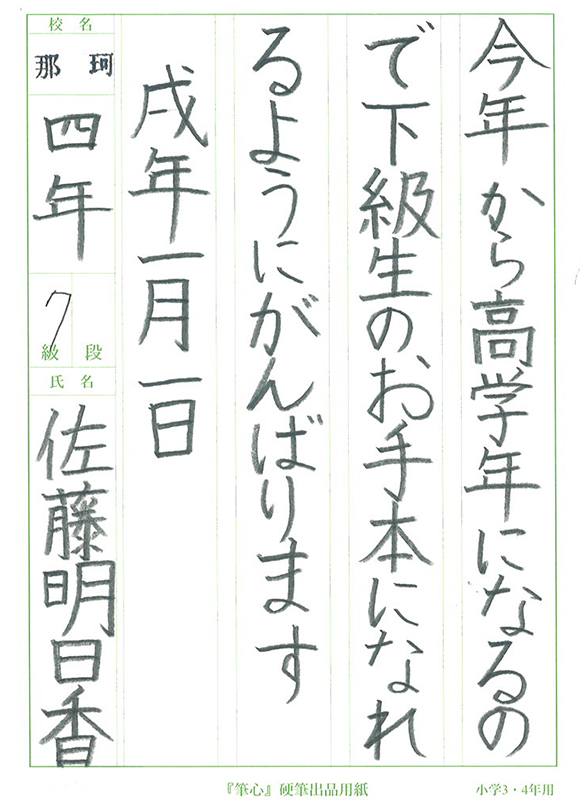 今年から高学年になるの
で下級生のお手本になれ
るようにがんばります
戌年一月一日
校名
那珂
四年
7級
段
氏名
佐藤明日香
『筆心』硬筆出品用紙
小学3・4年用